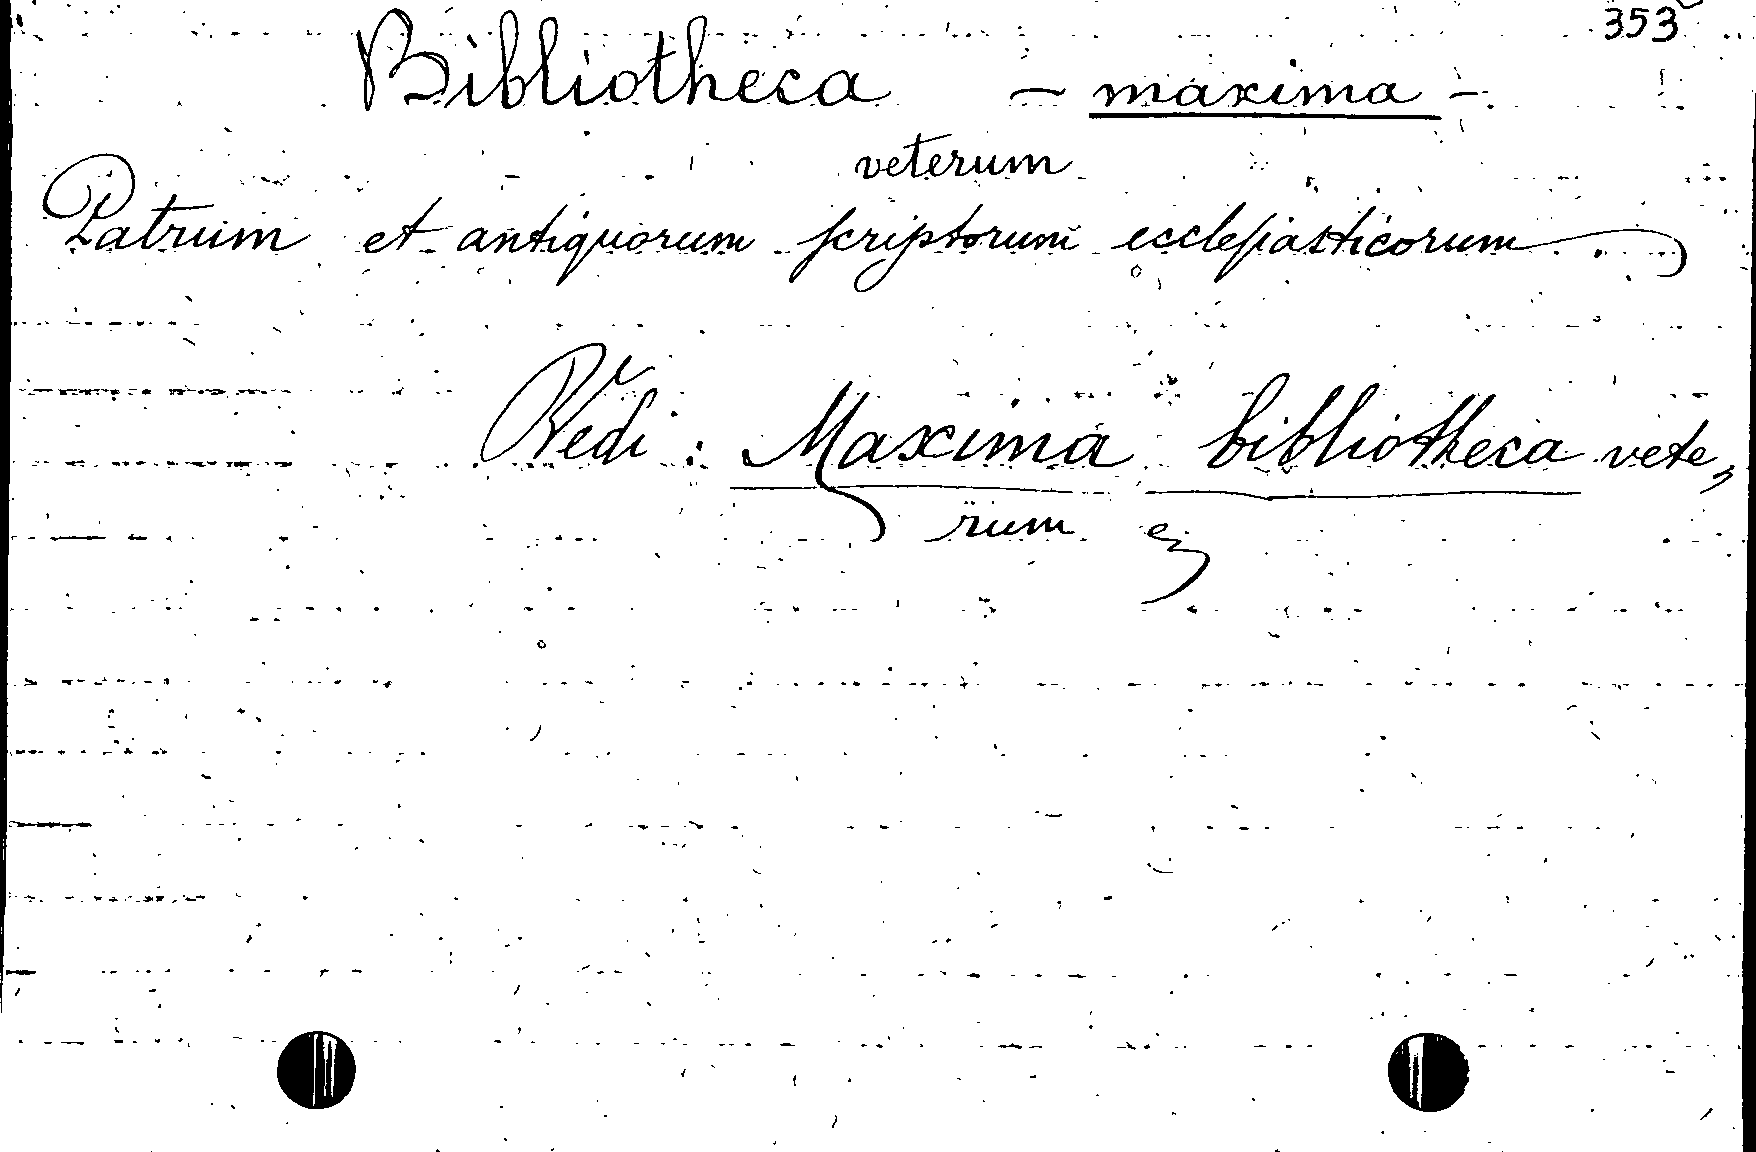 353
Bibliotheca - maxima -
veterum
Patrum et antiquorum scriptorum ecclesiasticorum
Vedi : Maxima bibliotheca vete„
rum